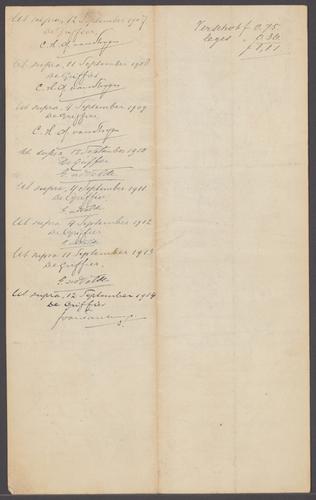 Ut supra, 12 September 1907
De Griffier
Ut supra, 11 September 1908
De Griffier
Ut supra, 9 September 1909
De Griffier
Ut supra, 12 September 1910
De Griffier
Ut supra, 11 September 1911
De Griffier
Ut supra, 9 September 1912
De Griffier
Ut supra, 11 September 1913
De Griffier.
Ut supra, 12 September 1914
De Griffier
Verschot f 0.75
leges - 0.36
f 1,11